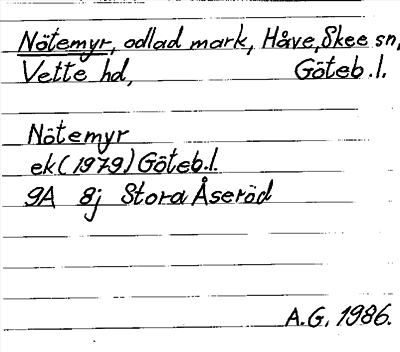 Nötemyr, odlad mark, Håve, Skee sn,
Vette hd, Göteb.l.
Nötemyr
ek (1979) Göteb.l.
9A 8j Stora Åseröd
A.G. 1986.